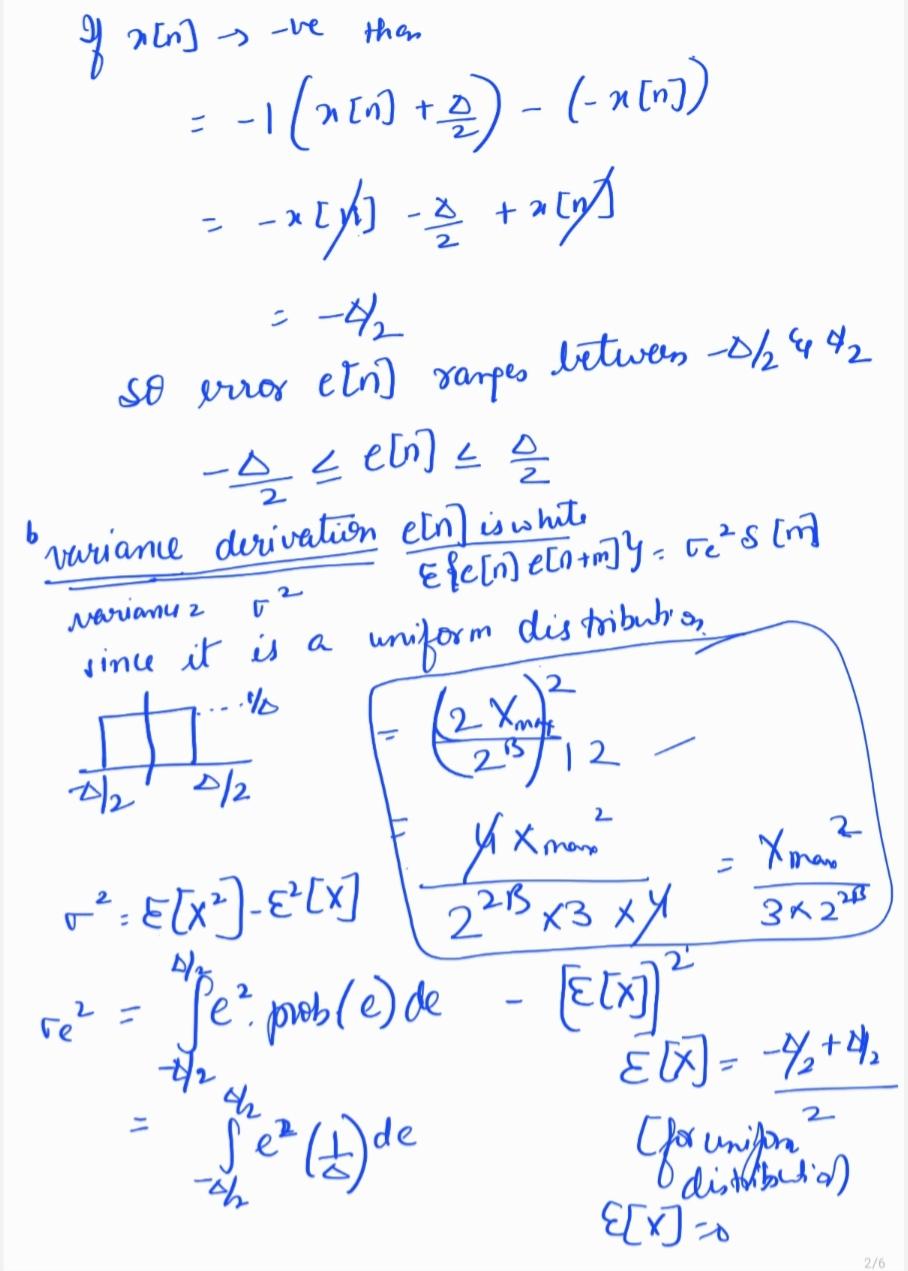 If x[n] → -ve then
= -1 (x[n] + Δ/2) - (-x[n])
= -x[n] - Δ/2 + x[n]
= -Δ/2
so error e[n] ranges between -Δ/2 & Δ/2
-Δ/2 ≤ e[n] ≤ Δ/2
b variance derivation e[n] is white
ε{e[n] e[n+m]} = σe² δ[m]
variance σ²
since it is a uniform distribution
1/Δ
-Δ/2 Δ/2
= (2 Xmax / 2^B)² 12
= 4 Xmax² / 2^2B ×3 ×4 = Xmax² / 3×2^2B
σ² = ε[x²] - ε²[x]
σe² = ∫_{-Δ/2}^{Δ/2} e². prob(e) de - [ε[x]]²
ε[x] = (-Δ/2 + Δ/2) / 2
= ∫_{-Δ/2}^{Δ/2} e² (1/Δ) de
(for uniform
distribution)
ε[x] = 0
2/6